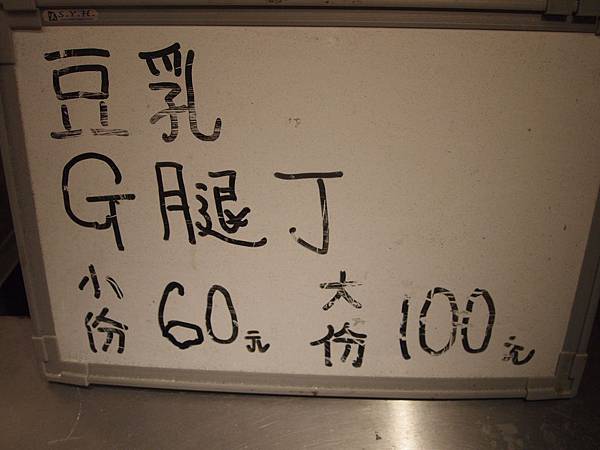 S.Y.H.
豆乳
G腿丁
小份 60元 大份 100元